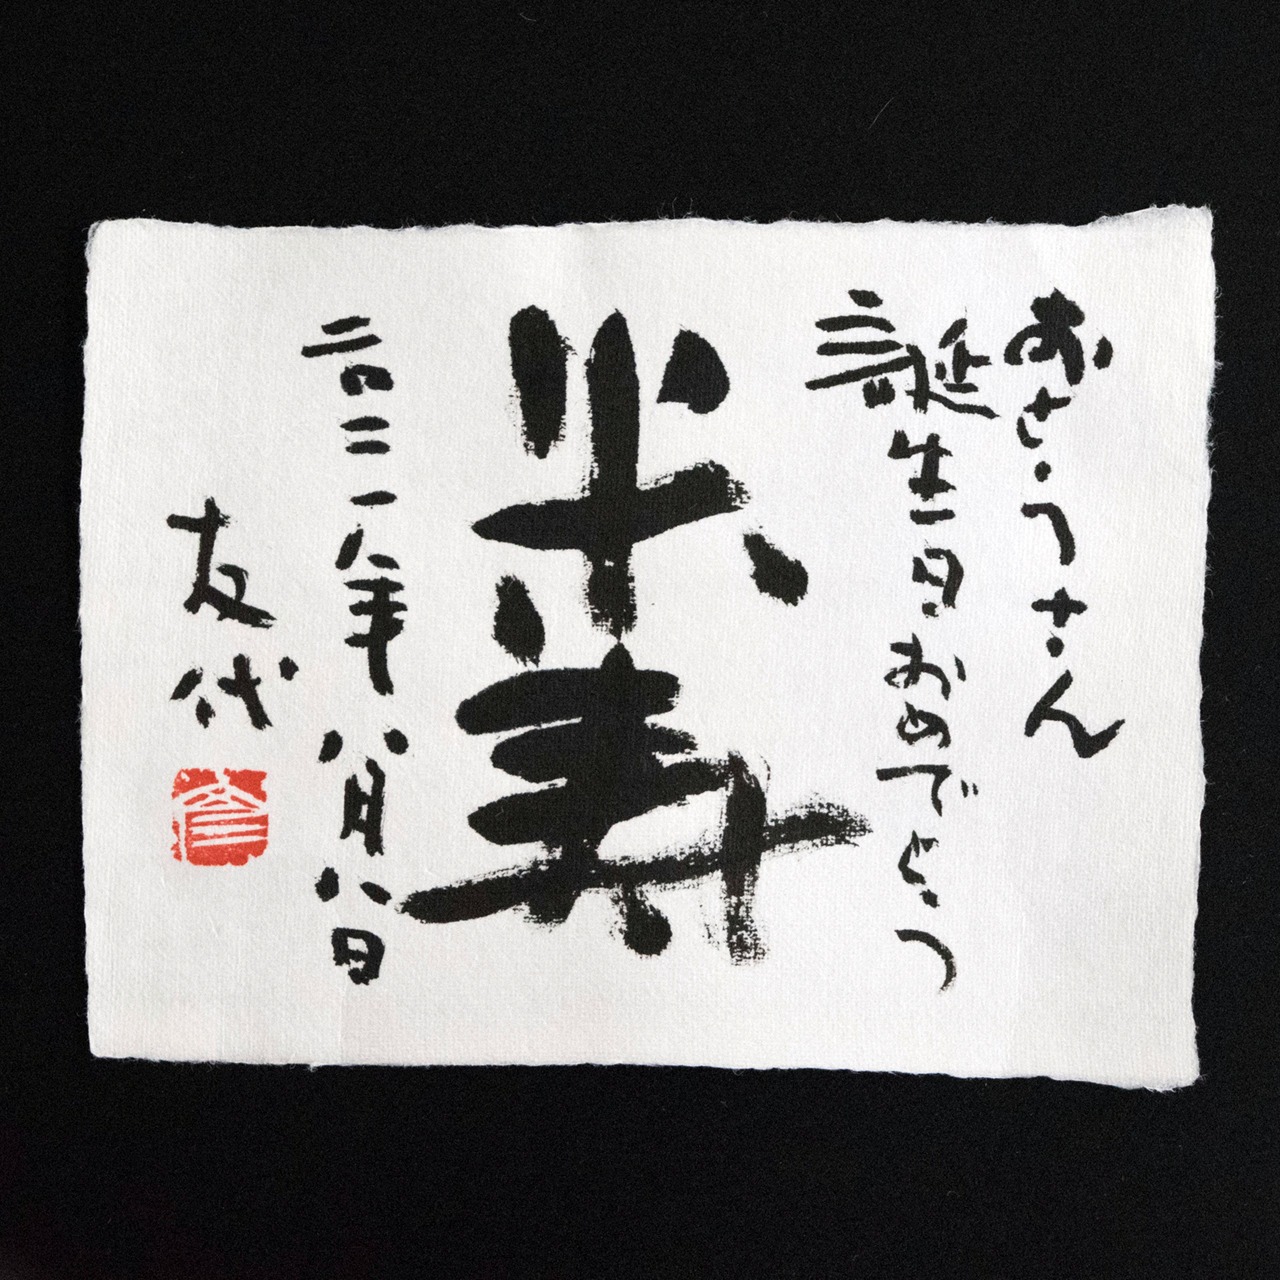 おとうさん
誕生日おめでとう
米寿
二〇二一年八月八日
友代